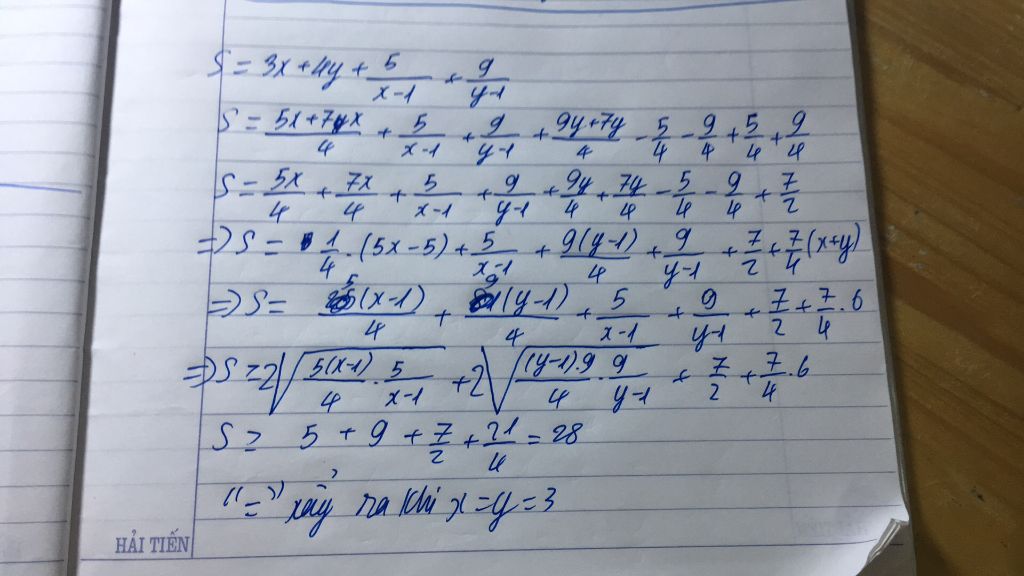 S = 3x + 4y + 5/(x-1) + 9/(y-1)
S = (5x+7x)/4 + 5/(x-1) + 9/(y-1) + (9y+7y)/4 - 5/4 - 9/4 + 5/4 + 9/4
S = 5x/4 + 7x/4 + 5/(x-1) + 9/(y-1) + 9y/4 + 7y/4 - 5/4 - 9/4 + 7/2
=> S = 1/4 . (5x-5) + 5/(x-1) + 9(y-1)/4 + 9/(y-1) + 7/2 + 7/4 (x+y)
=> S = 5(x-1)/4 + 9(y-1)/4 + 5/(x-1) + 9/(y-1) + 7/2 + 7/4 . 6
=> S ≥ 2√(5(x-1)/4 . 5/(x-1)) + 2√((y-1).9/4 . 9/(y-1)) + 7/2 + 7/4 . 6
S ≥ 5 + 9 + 7/2 + 21/4 = 28
"=" xảy ra khi x = y = 3
HẢI TIẾN